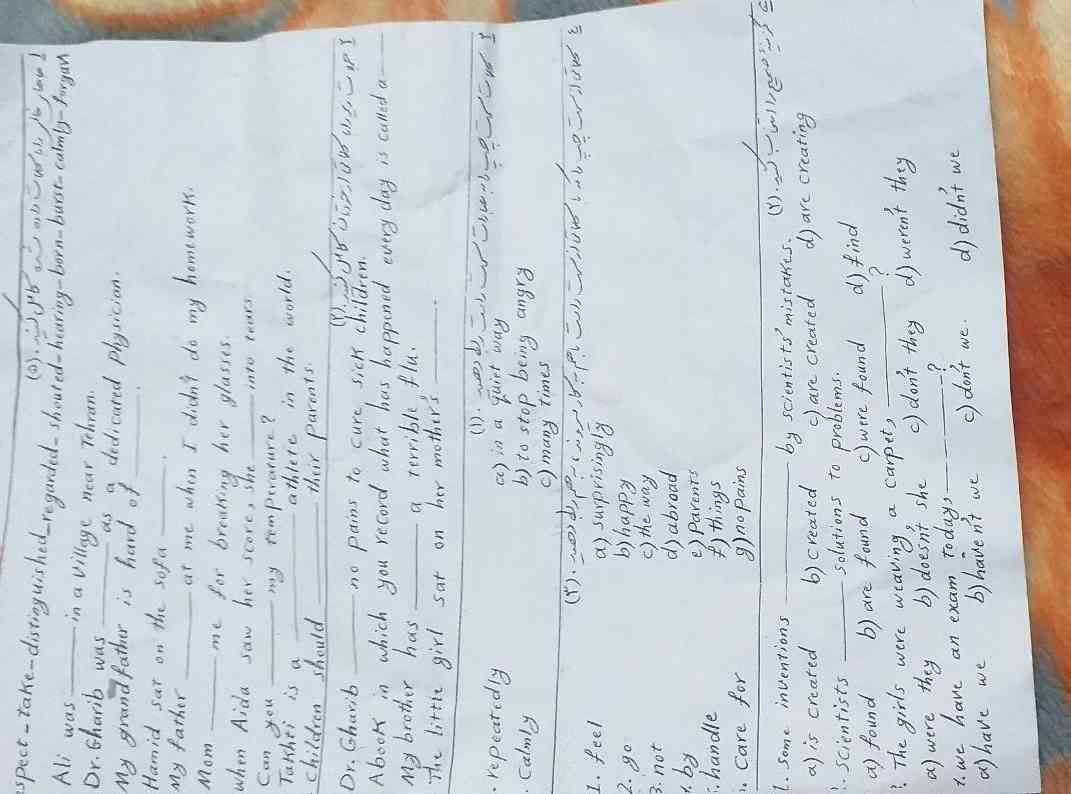 (۵).
spect-take-distinguished-regarded-shouted-hearing-born-burst-calmly-forgave
Ali was ____ in a village near Tehran.
Dr. Gharib was ____ as a dedicated physician.
My grandfather is hard of ____.
Hamid sat on the sofa ____.
My father ____ at me when I didn't do my homework.
Mom ____ me for breaking her glasses.
when Aida saw her score, she ____ into tears
Can you ____ my temperature?
Takhti is a ____ athlete in the world.
children should ____ their parents.
(۲)
Dr. Gharib ____ no pains to cure sick children.
A book in which you record what has happened every day is called a ____
My brother has ____ a terrible flu.
The little girl sat on her mother's ____.
(۱).
. repeatedly a) in a quiet way
. Calmly b) to stop being angry
c) many times
(۳).
1. feel a) surprisingly
2. go b) happy
3. not c) the way
۴. by d) abroad
handle e) parents
. care for f) things
g) no pains
(۲).
1. Some inventions ____ by scientists' mistakes.
a) is created b) created c) are created d) are creating
Scientists ____ solutions to problems.
a) found b) are found c) were found d) find
The girls were weaving a carpet, ____?
a) were they b) doesn't she c) don't they d) weren't they
۴. we have an exam today, ____?
a) have we b) haven't we c) don't we. d) didn't we